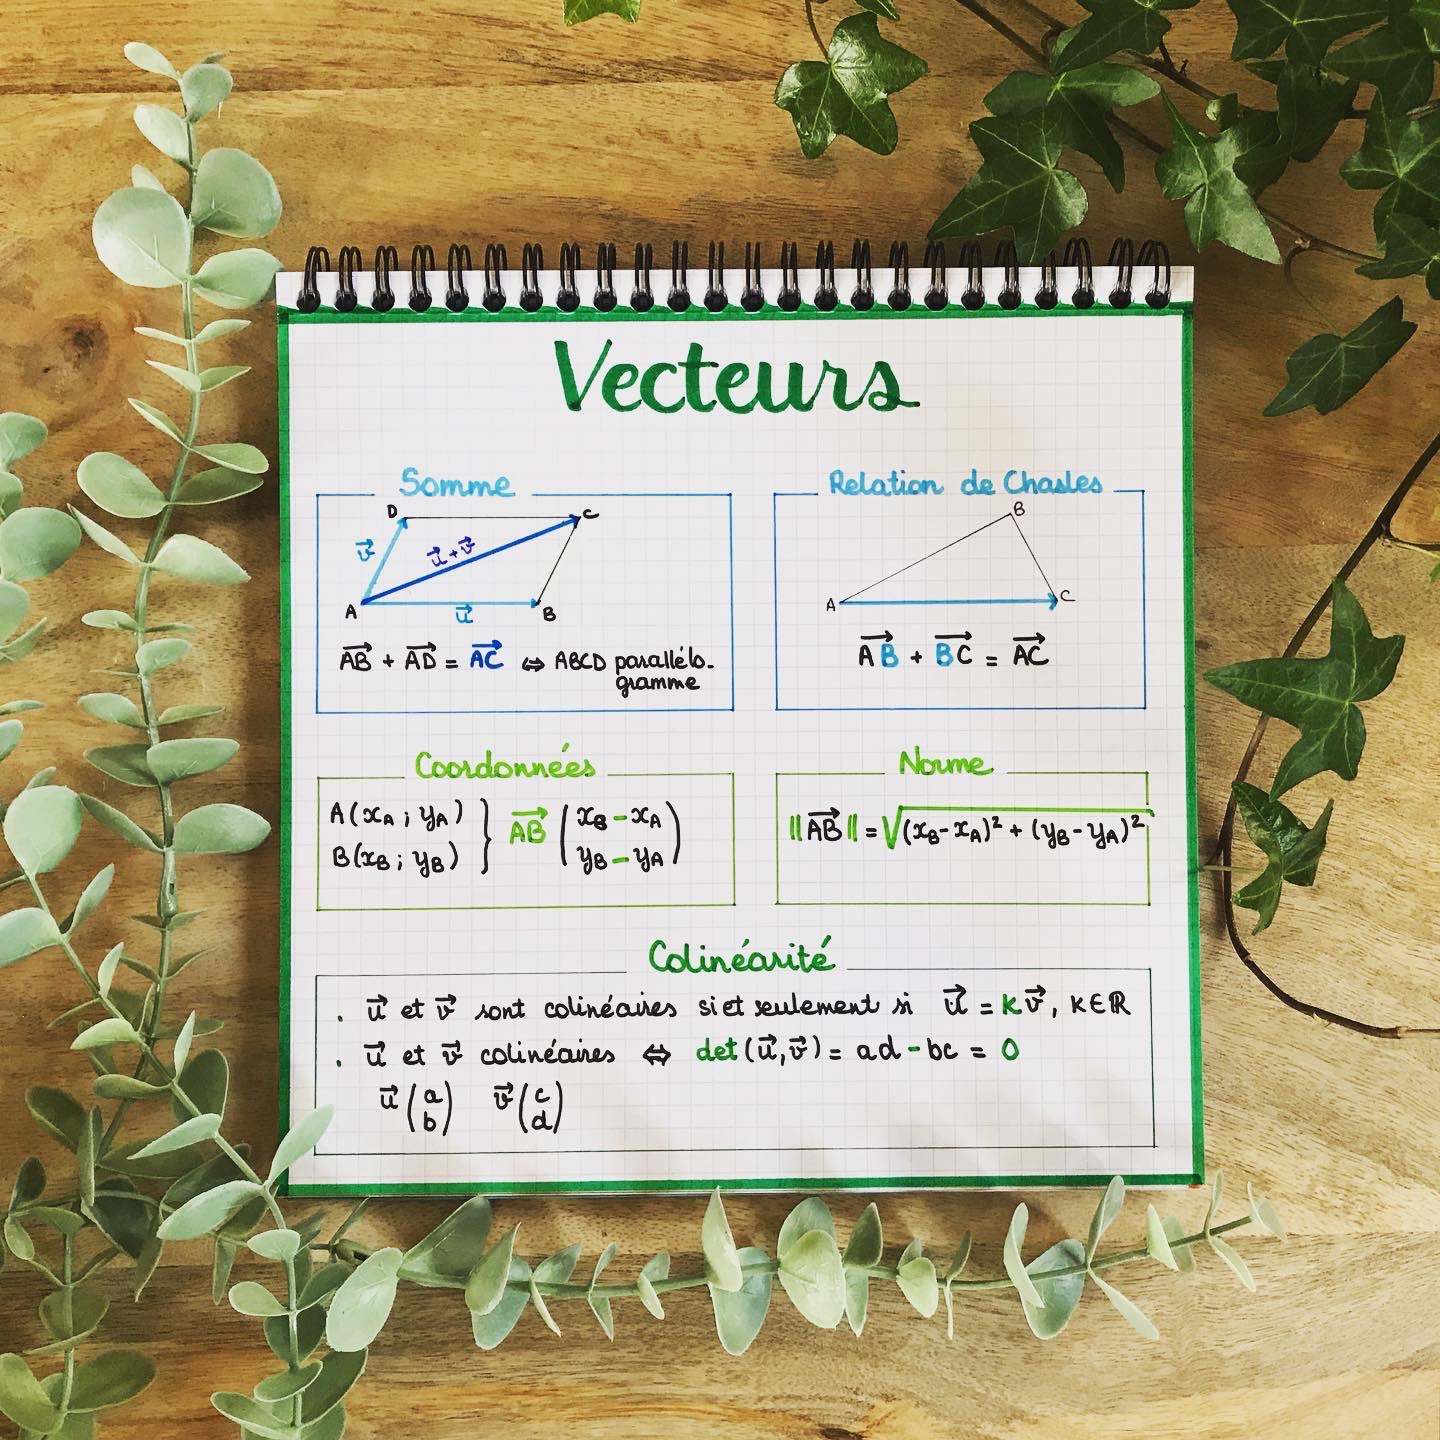 Vecteurs
Somme
D
C
v⃗
u⃗+v⃗
A
u⃗
B
AB⃗ + AD⃗ = AC⃗ ⇔ ABCD parallélo-
gramme
Relation de Chasles
B
A
C
AB⃗ + BC⃗ = AC⃗
Coordonnées
A(xA ; yA) } AB⃗ (xB - xA)
B(xB ; yB) } (yB - yA)
Norme
||AB⃗|| = √(xB-xA)² + (yB-yA)²
Colinéarité
. u⃗ et v⃗ sont colinéaires si et seulement si u⃗ = kv⃗, k∈ℝ
. u⃗ et v⃗ colinéaires ⇔ det(u⃗,v⃗) = ad-bc = 0
u⃗(a b) v⃗(c d)